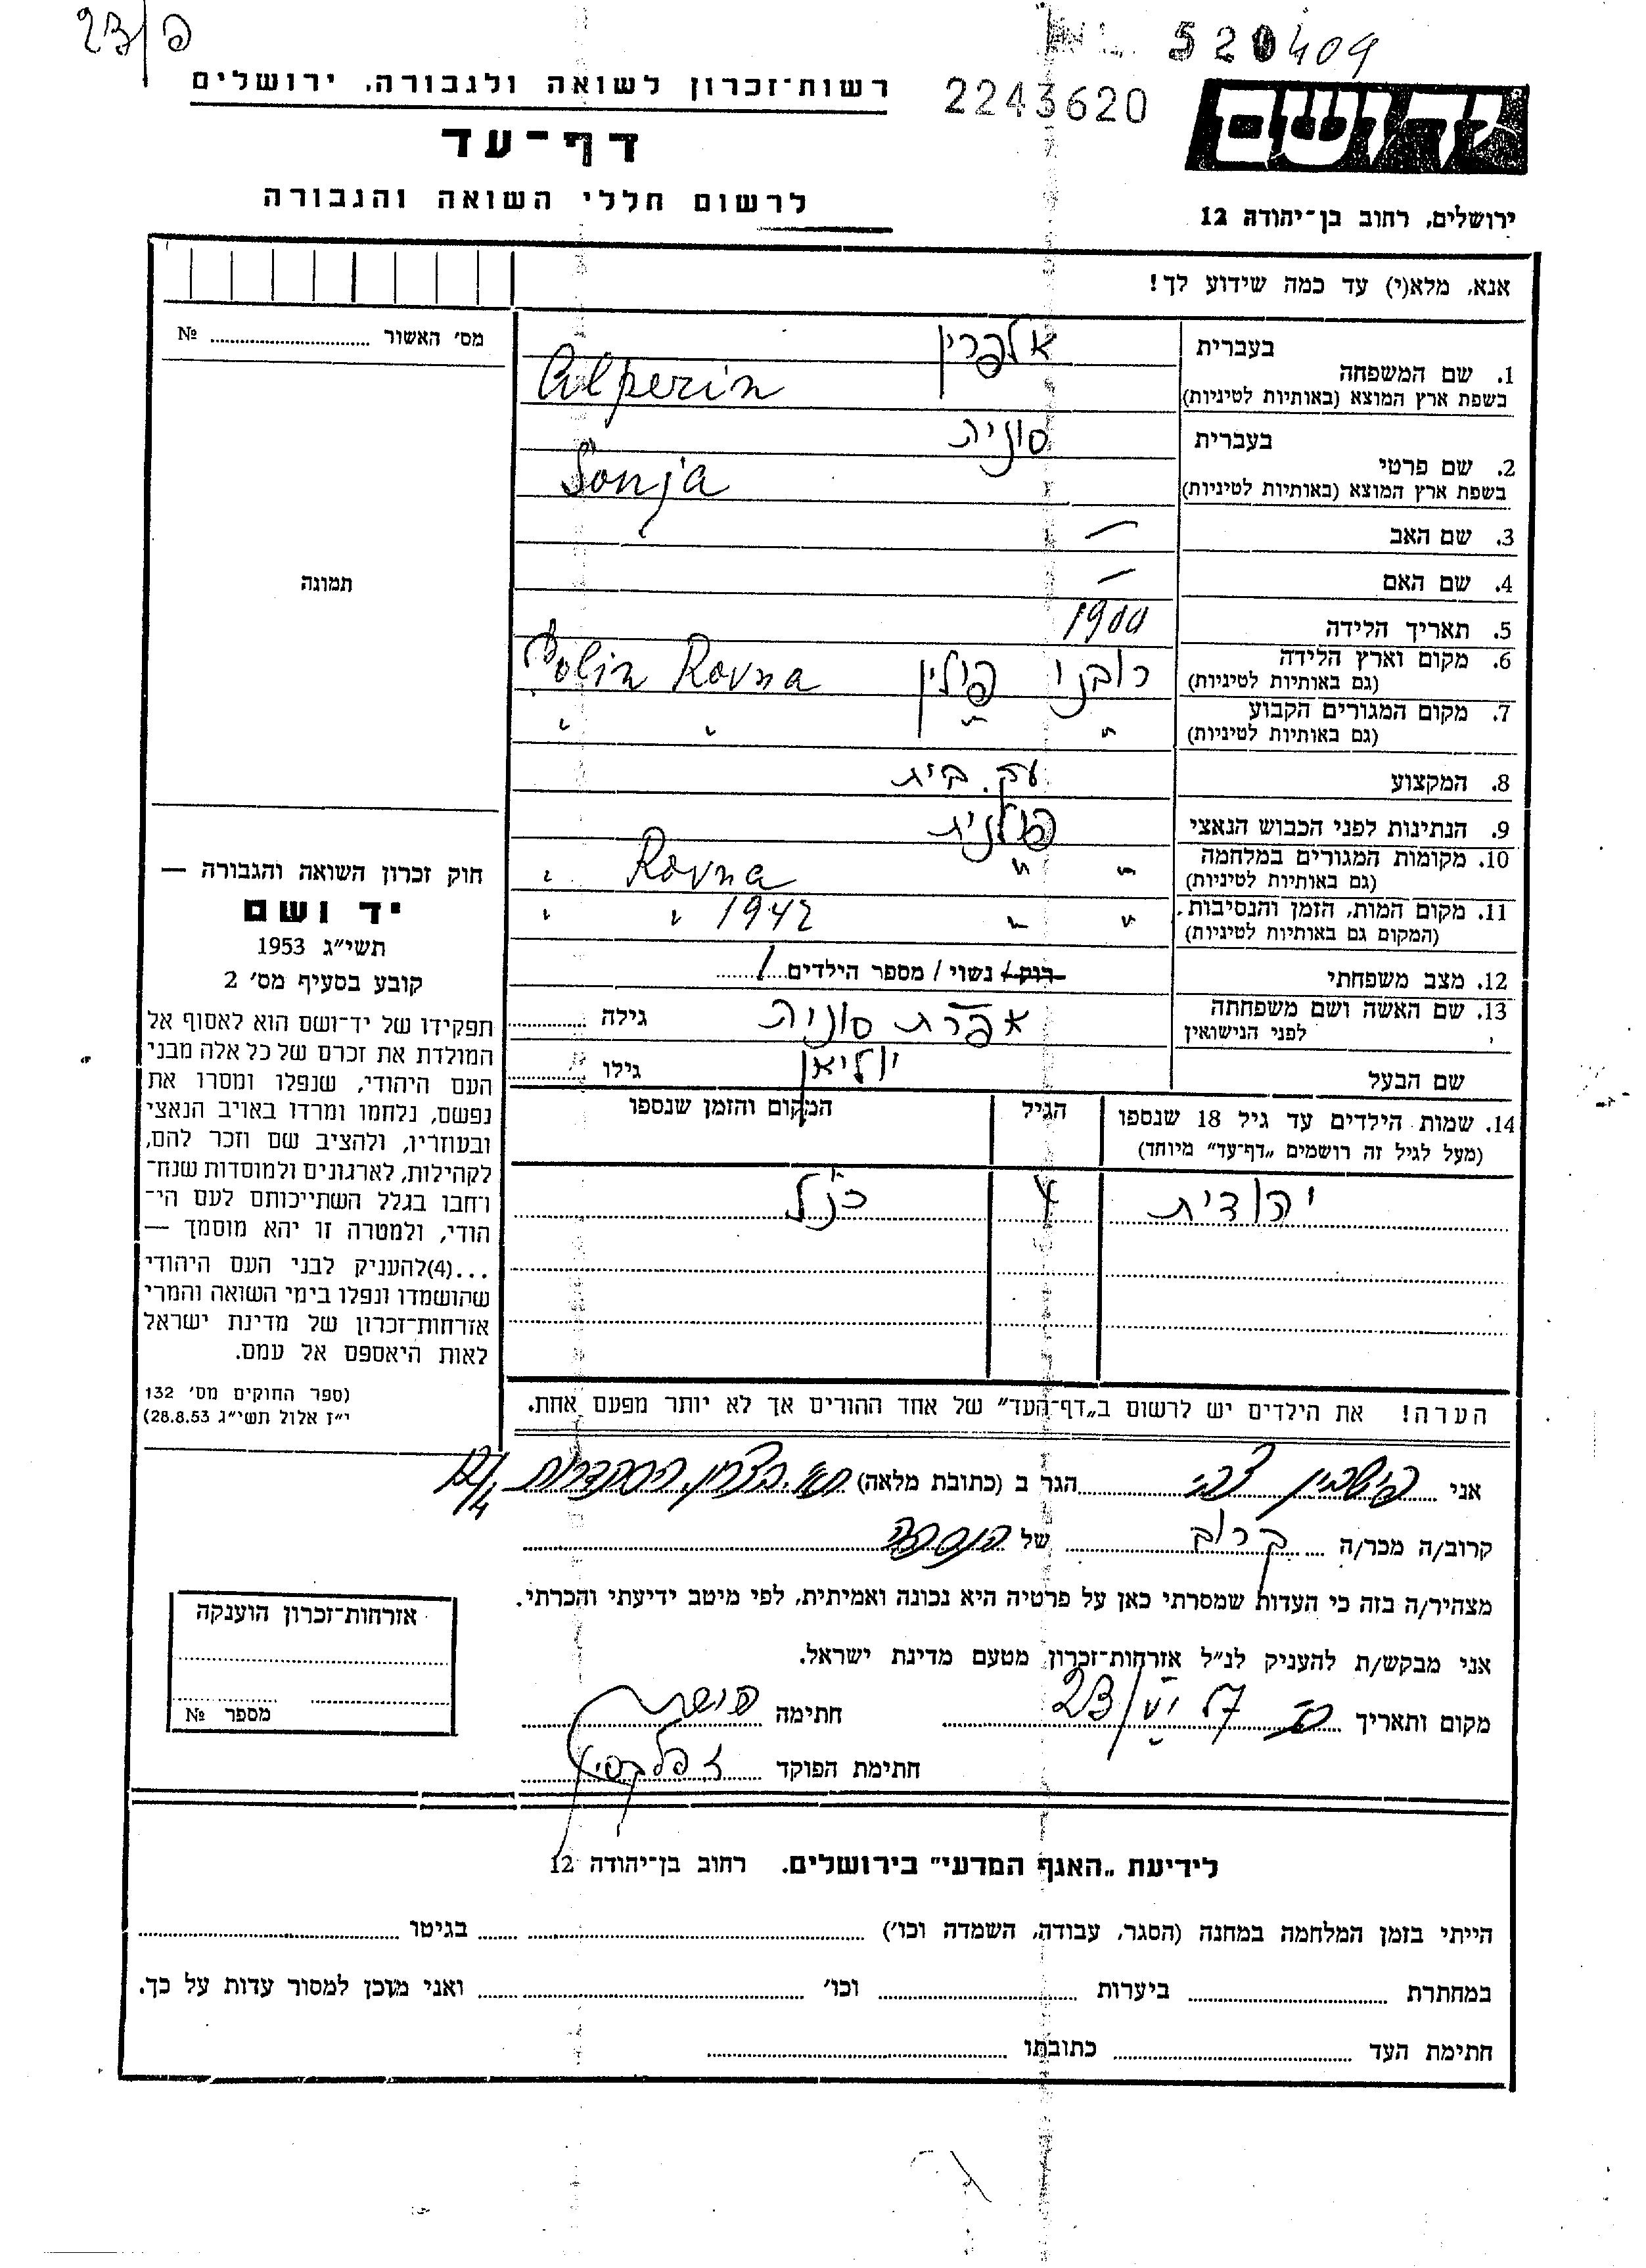 23/פ
520409
רשות־זכרון לשואה ולגבורה. ירושלים
2243620
יד ושם
דף־עד
לרשום חללי השואה והגבורה
ירושלים, רחוב בן־יהודה 12
אנא, מלא(י) עד כמה שידוע לך!
מס׳ האשור № 
תמונה
חוק זכרון השואה והגבורה —
יד ושם
תשי״ג 1953
קובע בסעיף מס׳ 2
תפקידו של יד־ושם הוא לאסוף אל
המולדת את זכרם של כל אלה מבני
העם היהודי, שנפלו ומסרו את
נפשם, נלחמו ומרדו באויב הנאצי
ובעוזריו, ולהציב שם וזכר להם,
לקהילות, לארגונים ולמוסדות שנח־
רחבו בגלל השתייכותם לעם הי־
הודי, ולמטרה זו יהא מוסמך —
...(4)להעניק לבני העם היהודי
שהושמדו ונפלו בימי השואה והמרי
אזרחות־זכרון של מדינת ישראל
לאות היאספם אל עמם.
(ספר החוקים מס׳ 132
י״ז אלול תשי״ג 28.8.53)
בעברית אלפרין
1. שם המשפחה
בשפת ארץ המוצא (באותיות לטיניות) Alperin
בעברית סונית
2. שם פרטי
בשפת ארץ המוצא (באותיות לטיניות) Sonja
3. שם האב —
4. שם האם —
5. תאריך הלידה 1900
6. מקום וארץ הלידה רובנו פולין Rovna Polin
(גם באותיות לטיניות)
7. מקום המגורים הקבוע " " " "
(גם באותיות לטיניות)
8. המקצוע עק. בית
9. הנתינות לפני הכבוש הנאצי פולנית
10. מקומות המגורים במלחמה " " Rovna "
(גם באותיות לטיניות)
11. מקום המות, הזמן והנסיבות. " " 1942 " "
(המקום גם באותיות לטיניות)
12. מצב משפחתי רוק/ נשוי / מספר הילדים 1
13. שם האשה ושם משפחתה אפרת סונית גילה
לפני הנישואין
שם הבעל יוליאן גילו
14. שמות הילדים עד גיל 18 שנספו הגיל המקום והזמן שנספו
(מעל לגיל זה רושמים „דף־עד״ מיוחד)
יהודית 4 כנ״ל
הערה! את הילדים יש לרשום ב„דף־העד״ של אחד ההורים אך לא יותר מפעם אחת.
אני פישביין צבי הגר ב (כתובת מלאה)
קרוב/ה מכר/ה קרוב של הנספה
מצהיר/ה בזה כי העדות שמסרתי כאן על פרטיה היא נכונה ואמיתית, לפי מיטב ידיעתי והכרתי.
אני מבקש/ת להעניק לנ״ל אזרחות־זכרון מטעם מדינת ישראל.
מקום ותאריך 23/ חתימה
חתימת הפוקד
אזרחות־זכרון הוענקה
מספר №
לידיעת „האגף המדעי״ בירושלים. רחוב בן־יהודה 12
הייתי בזמן המלחמה במחנה (הסגר, עבודה, השמדה וכו׳) בגיטו
במחתרת ביערות וכו׳ ואני מוכן למסור עדות על כך.
חתימת העד כתובתו